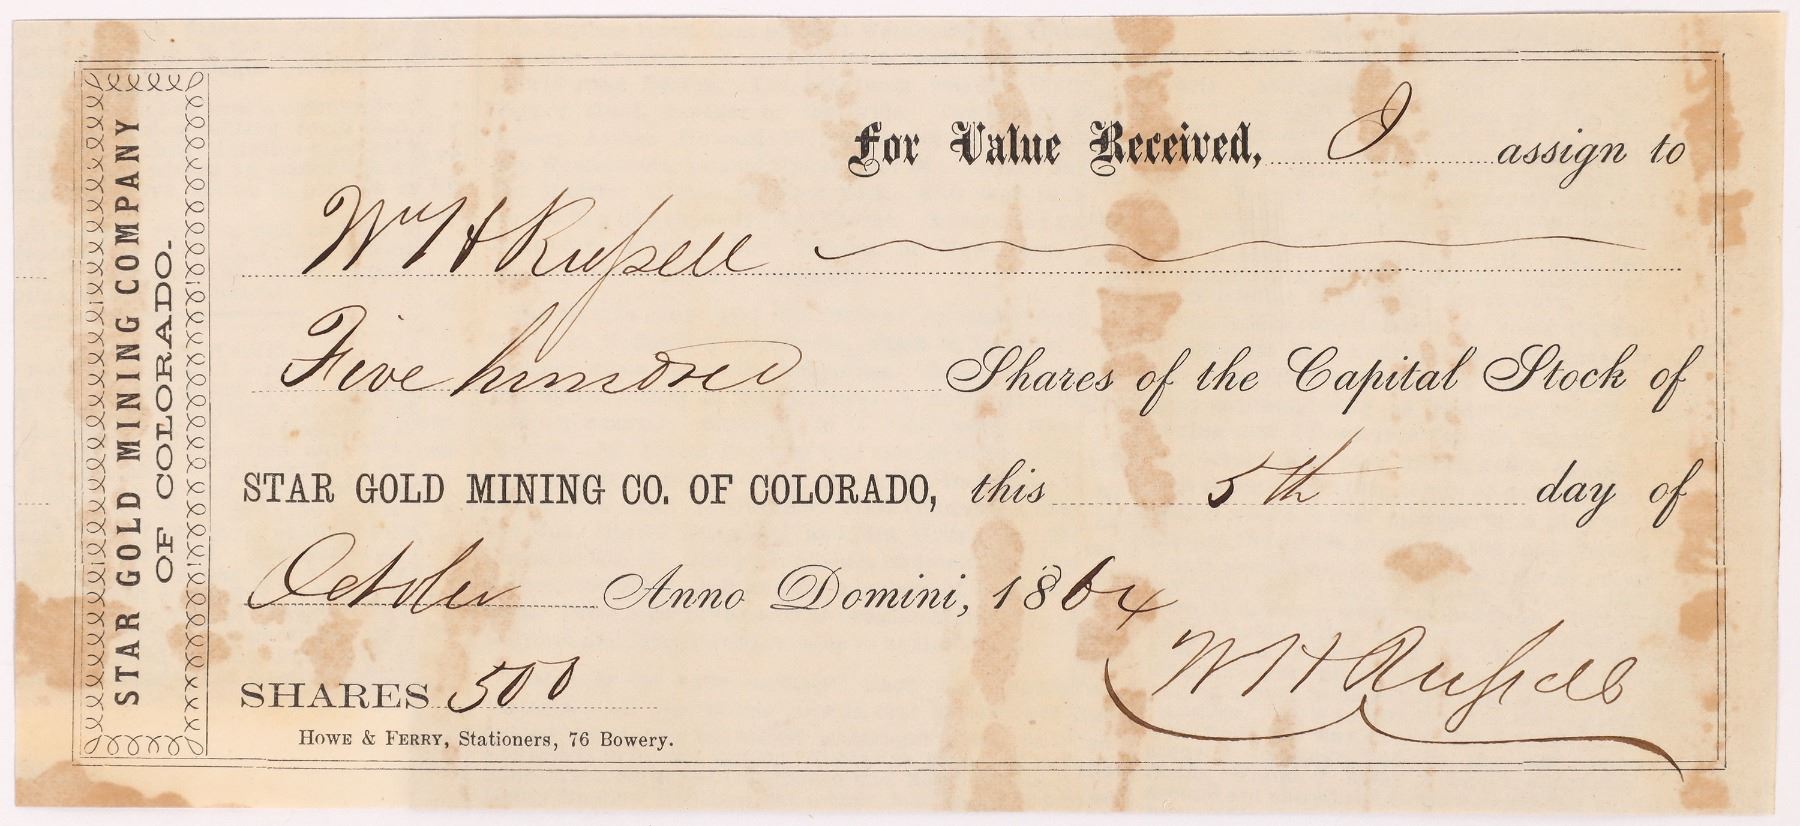 STAR GOLD MINING COMPANY
OF COLORADO.
For Value Received, I assign to
Wm H Russell
Five hundred Shares of the Capital Stock of
STAR GOLD MINING CO. OF COLORADO, this 5th day of
October Anno Domini, 1864
W H Russell
SHARES 500
HOWE & FERRY, Stationers, 76 Bowery.